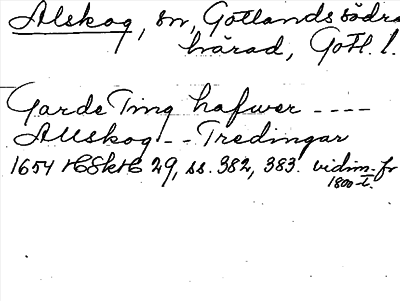 Alskog, sn, Gotlands södra
härad, Gotl. l.
Garde Ting hafwer ----
Allskog -- Tredingar
1654 HSkH 29, ss. 382, 383. vidim. fr
1800-t.